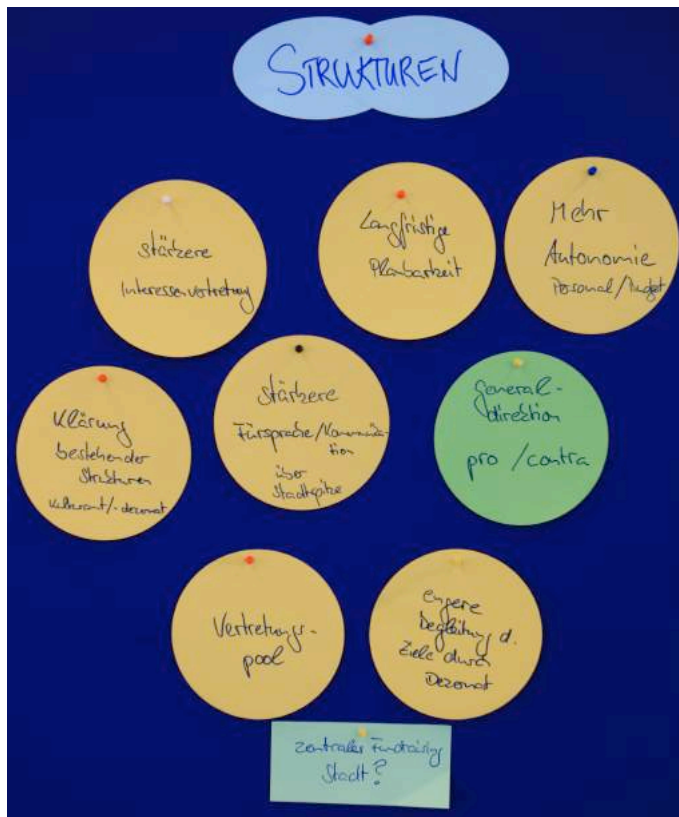 STRUKTUREN
stärkere
Interessenvertretung
Langfristige
Planbarkeit
Mehr
Autonomie
Personal/Budget
Klärung
bestehender
Strukturen
Kulturamt/-dezernat
stärkere
Fürsprache/Kommunika-
tion
über
Stadtspitze
General-
direktion
pro/contra
Vertretungs-
pool
engere
Begleitung d.
Ziele durch
Dezernat
zentrales Fundraising
Stadt?